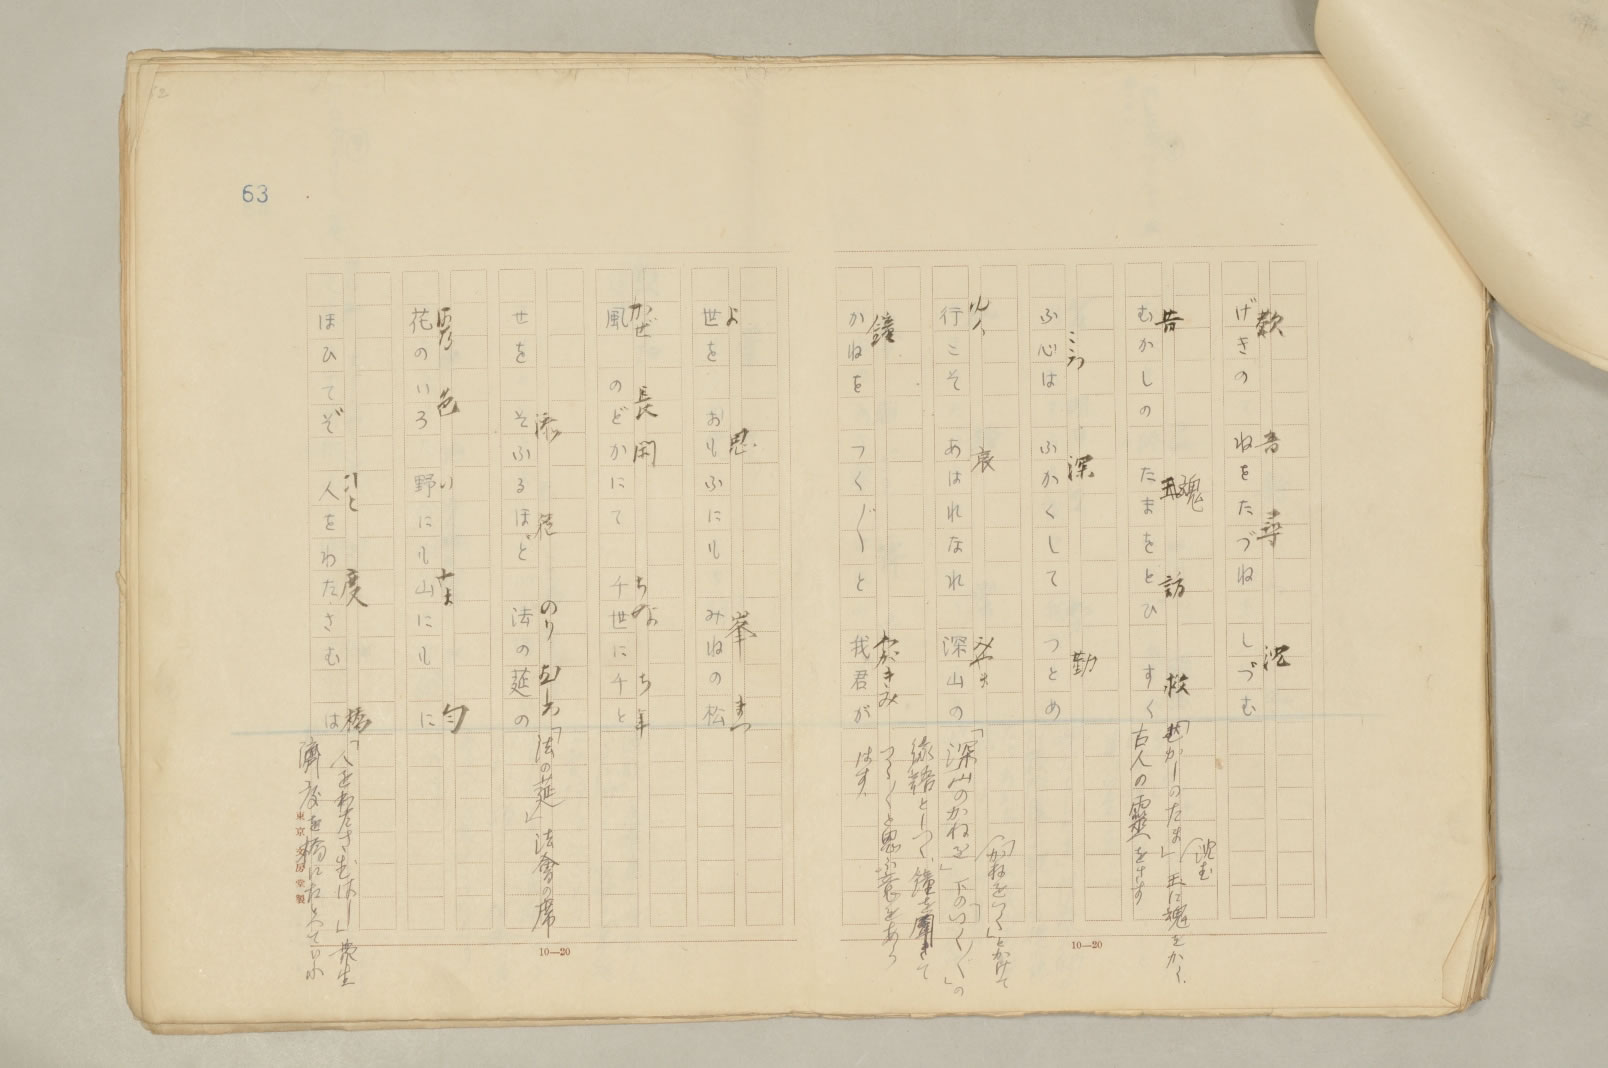 63
歎 音 尋 沈
げきの ねをたづね しづむ
昔 魂 訪 救
むかしの たまをとひ すく
「むかしのたま」玉に魂をかく、
(沈む
古人の靈をさす
こゝろ 深 勤
ふ心は ふかくして つとめ
ゆく 哀 みやま
行こそ あはれなれ 深山の
(「かねをつく」とかけて
「深山のかねを」下の「つく〴〵」の
鐘 わがきみ
かねを つく〴〵と 我君が
縁語としつく、鐘を聞きて
つく〴〵と思ふ意をあら
はす、
よ 思 峯 まつ
世を おもふにも みねの松
かぜ 長閑 ちよ ち年
風 のどかにて 千世に千と
添 程 のり
せを そふるほど 法の莚の
「法の莚」法會の席
はな 色 い やま 匂
花のいろ 野にも山にも に
ひと 度 橋
ほひてぞ 人をわたさむ は
「人をわたさむはし」衆生
濟度を橋にたとへていふ
10—20
10—20
東京文房堂製